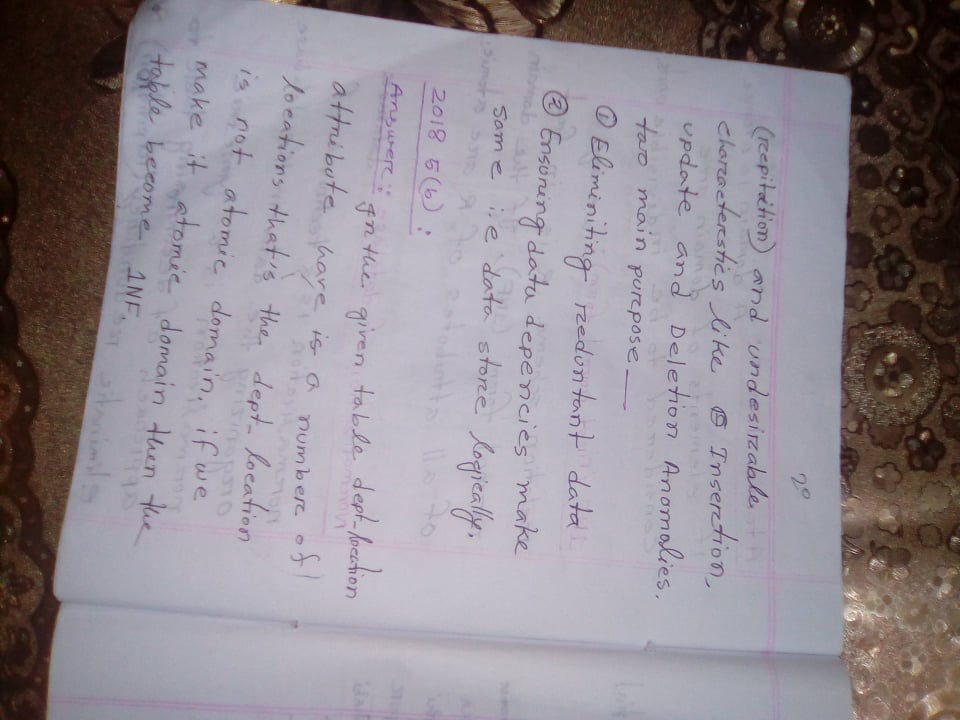 20
(repitation) and undesirable
characterstics like Insertion,
update and Deletion Anomalies.
two main purpose __
① Eliminiting reduntant data
② Ensuring data depencies make
same i.e data store logically.
2018 5(b) :
Answer : In the given table dept-location
attribute have is a number of
locations that's the dept- location
is not atomic domain. if we
make it atomic domain then the
table become 1NF.